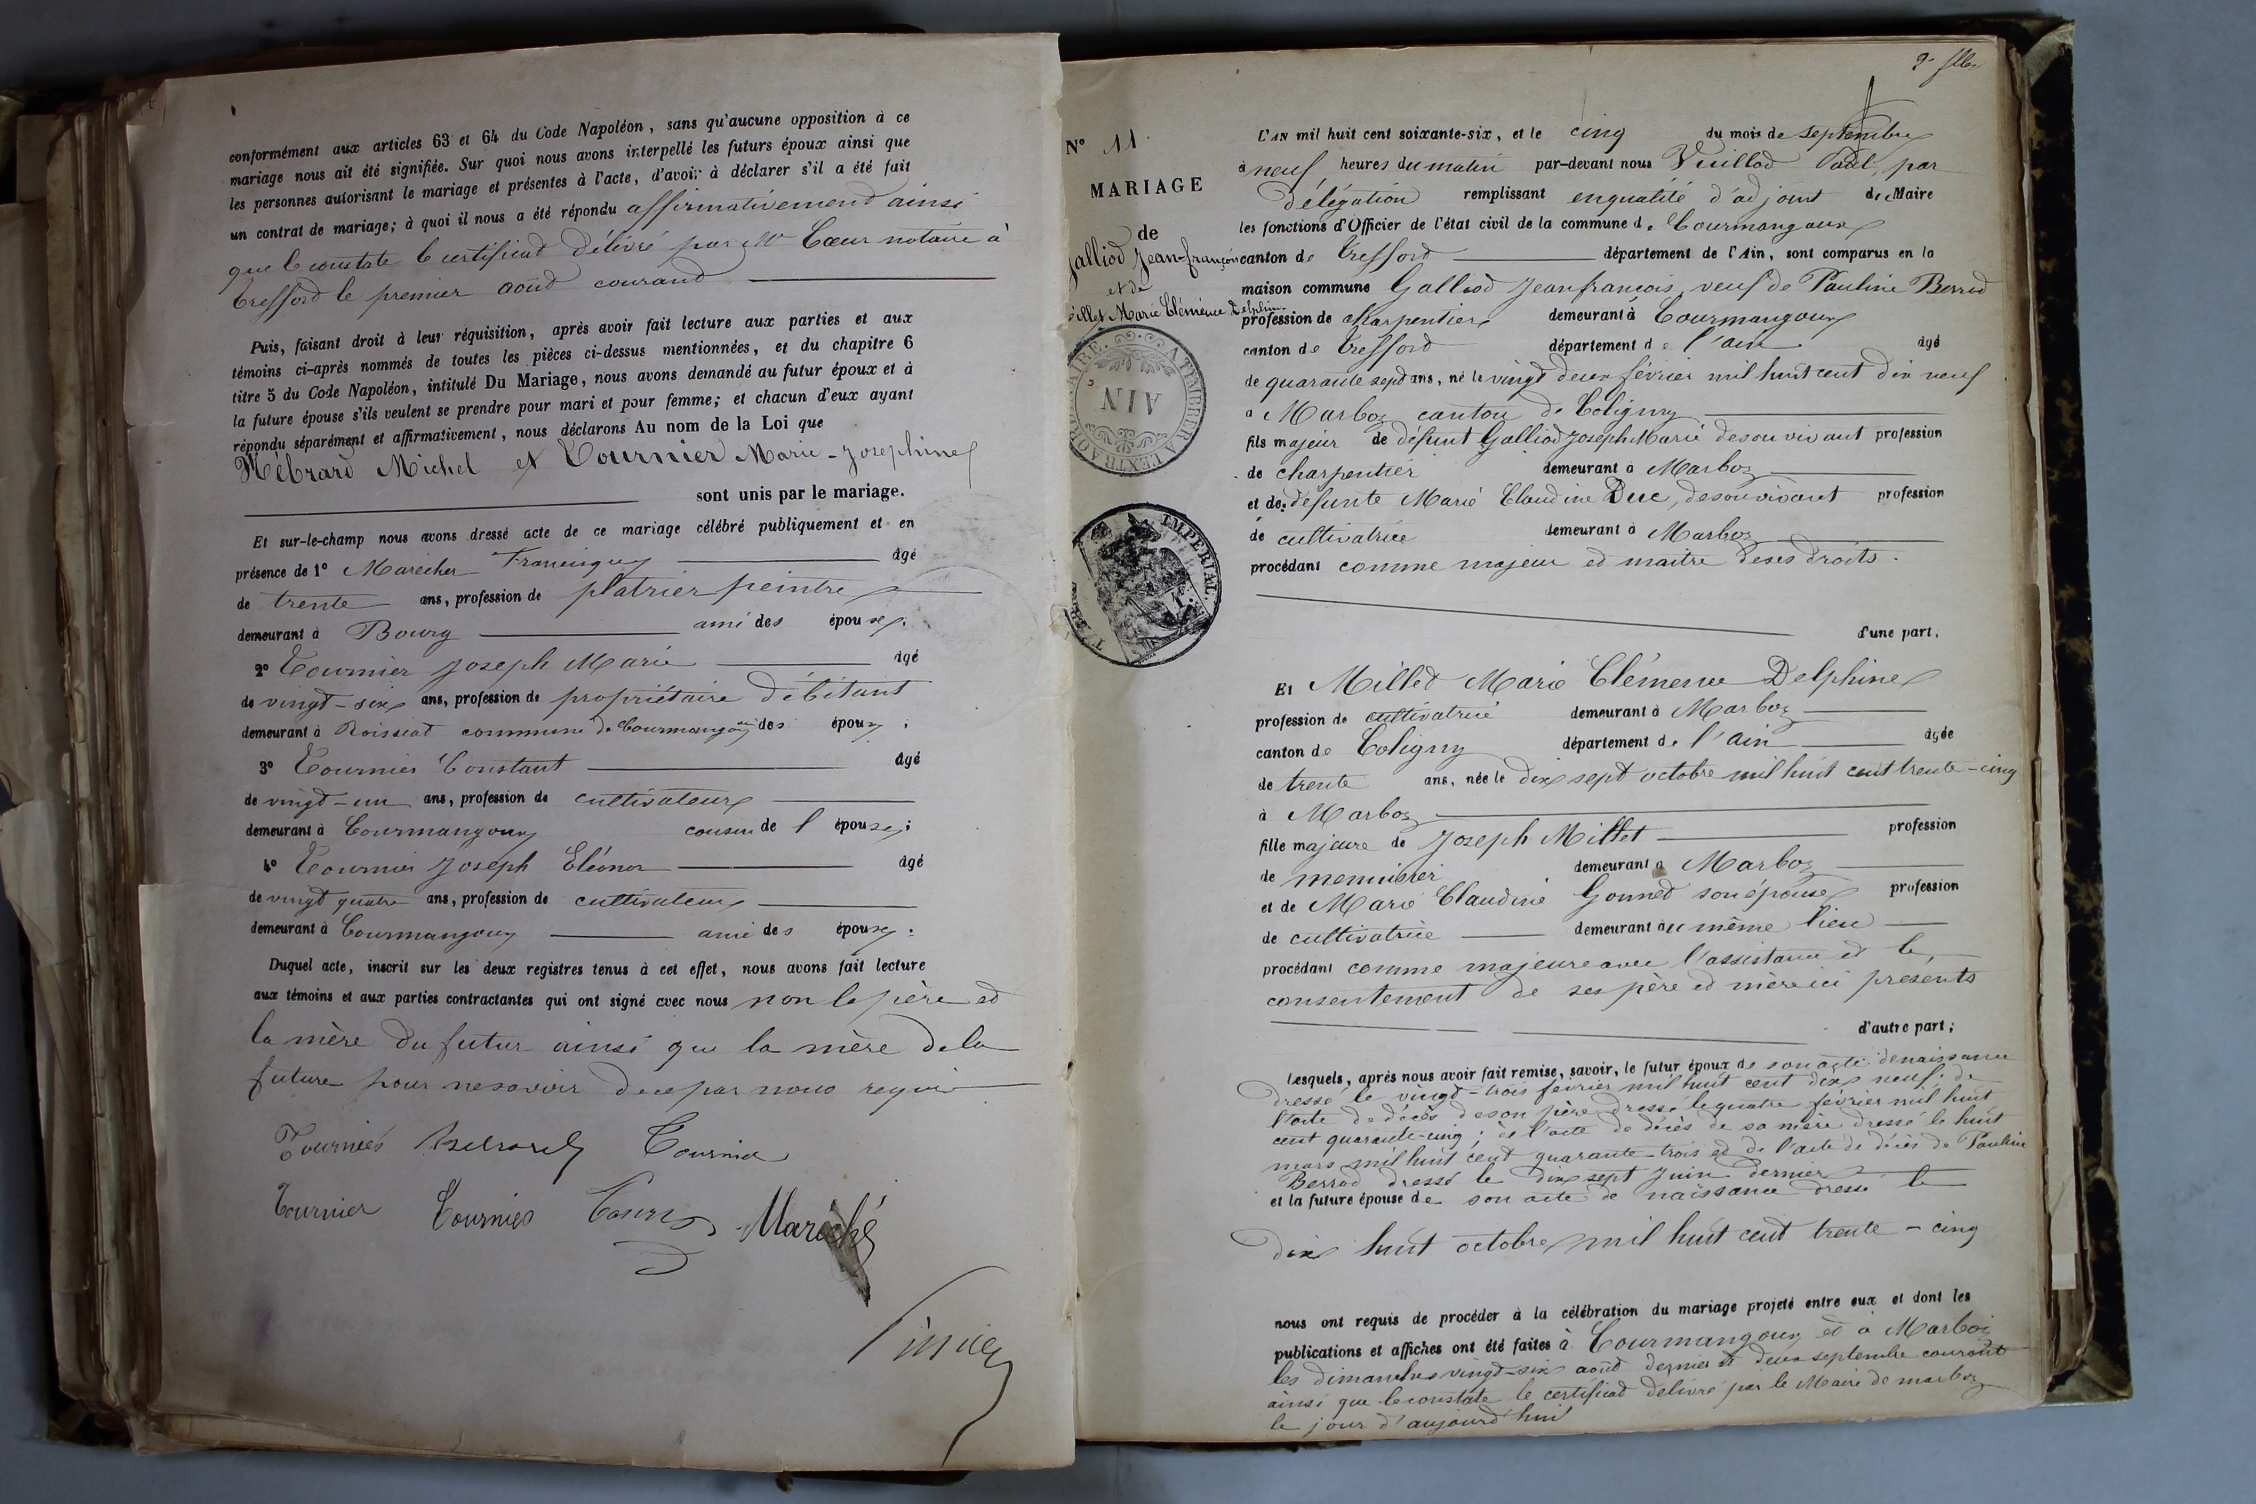 conformément aux articles 63 et 64 du Code Napoléon, sans qu'aucune opposition à ce
mariage nous ait été signifiée. Sur quoi nous avons interpellé les futurs époux ainsi que
les personnes autorisant le mariage et présentes à l'acte, d'avoir à déclarer s'il a été fait
un contrat de mariage; à quoi il nous a été répondu affirmativement ainsi
que le constate le certificat délivré par Me Cœur notaire à
Treffort le premier aoud courand
Puis, faisant droit à leur réquisition, après avoir fait lecture aux parties et aux
témoins ci-après nommés de toutes les pièces ci-dessus mentionnées, et du chapitre 6
titre 5 du Code Napoléon, intitulé Du Mariage, nous avons demandé au futur époux et à
la future épouse s'ils veulent se prendre pour mari et pour femme; et chacun d'eux ayant
répondu séparément et affirmativement, nous déclarons Au nom de la Loi que
Hébrard Michel et Tournier Marie-Josephine
sont unis par le mariage.
Et sur-le-champ nous avons dressé acte de ce mariage célébré publiquement et en
présence de 1° Marécher Françisque âgé
de trente ans, profession de platrier peintre
demeurant à Bourg ami des époux.
2° Tournier Joseph Marie âgé
de vingt-six ans, profession de propriétaire débitant
demeurant à Roissiat commune de Courmangoux des époux;
3° Tournier Constant âgé
de vingt-un ans, profession de cultivateur
demeurant à Courmangoux cousin de l épouse;
4° Tournier Joseph Eléonor âgé
de vingt quatre ans, profession de cultivateur
demeurant à Courmangoux ami des époux.
Duquel acte, inscrit sur les deux registres tenus à cet effet, nous avons fait lecture
aux témoins et aux parties contractantes qui ont signé avec nous non le père et
la mère du futur ainsi que la mère de la
future pour ne savoir de ce par nous requis
Tournier Hebrard Tournier
Tournier Tournier Marèché
9e flles
N° 11
MARIAGE
de
Galliod Jean-françois
et de
Millet Marie Clémence Delphine
TIMBRE A L'EXTRAORDINAIRE
AIN
IMPERIAL
L'AN mil huit cent soixante-six, et le cinq du mois de septembre
à neuf heures du matin par-devant nous Vieillod Paul, par
délégation remplissant en qualité d'adjoint de Maire
les fonctions d'Officier de l'état civil de la commune de Courmangoux
canton de Treffort département de l'Ain, sont comparus en la
maison commune Galliod Jean françois veuf de Pauline Berrod
profession de charpentier demeurant à Courmangoux
canton de Treffort département de l'ain âgé
de quarante sept ans, né le vingt deux février mil huit cent dix neuf
à Marboz canton de Coligny
fils majeur de défunt Galliod Joseph Marie de son vivant profession
de charpentier demeurant à Marboz
et de défunte Marie Claudine Duc, de son vivant profession
de cultivatrice demeurant à Marboz
procédant comme majeur et maitre de ses droits.
d'une part,
Et Milled Marie Clémence Delphine
profession de cultivatrice demeurant à Marboz
canton de Coligny département de l'ain âgée
de trente ans, née le dix sept octobre mil huit cent trente-cinq
à Marboz
fille majeure de Joseph Millet profession
de menuisier demeurant à Marboz
et de Marie Claudine Gonned son épouse profession
de cultivatrice demeurant au même lieu
procédant comme majeure avec l'assistance et le
consentement de ses père et mère ici présents
d'autre part;
Lesquels, après nous avoir fait remise, savoir, le futur époux de son acte de naissance
dressé le vingt-trois février mil huit cent dix neuf; de
l'acte de décès de son père dressé le quatre février mil huit
cent quarante-cinq; de l'acte de décès de sa mère dressé le huit
mars mil huit cent quarante-trois et de l'acte de décès de Pauline
Berrod dressé le dix sept Juin dernier
et la future épouse de son acte de naissance dressé le
dix huit octobre mil huit cent trente-cinq
nous ont requis de procéder à la célébration du mariage projeté entre eux et dont les
publications et affiches ont été faites à Courmangoux et à Marboz
les dimanches vingt-six août dernier et deux septembre courant
ainsi que le constate le certificat délivré par le Maire de marboz
le jour d'aujourd'hui